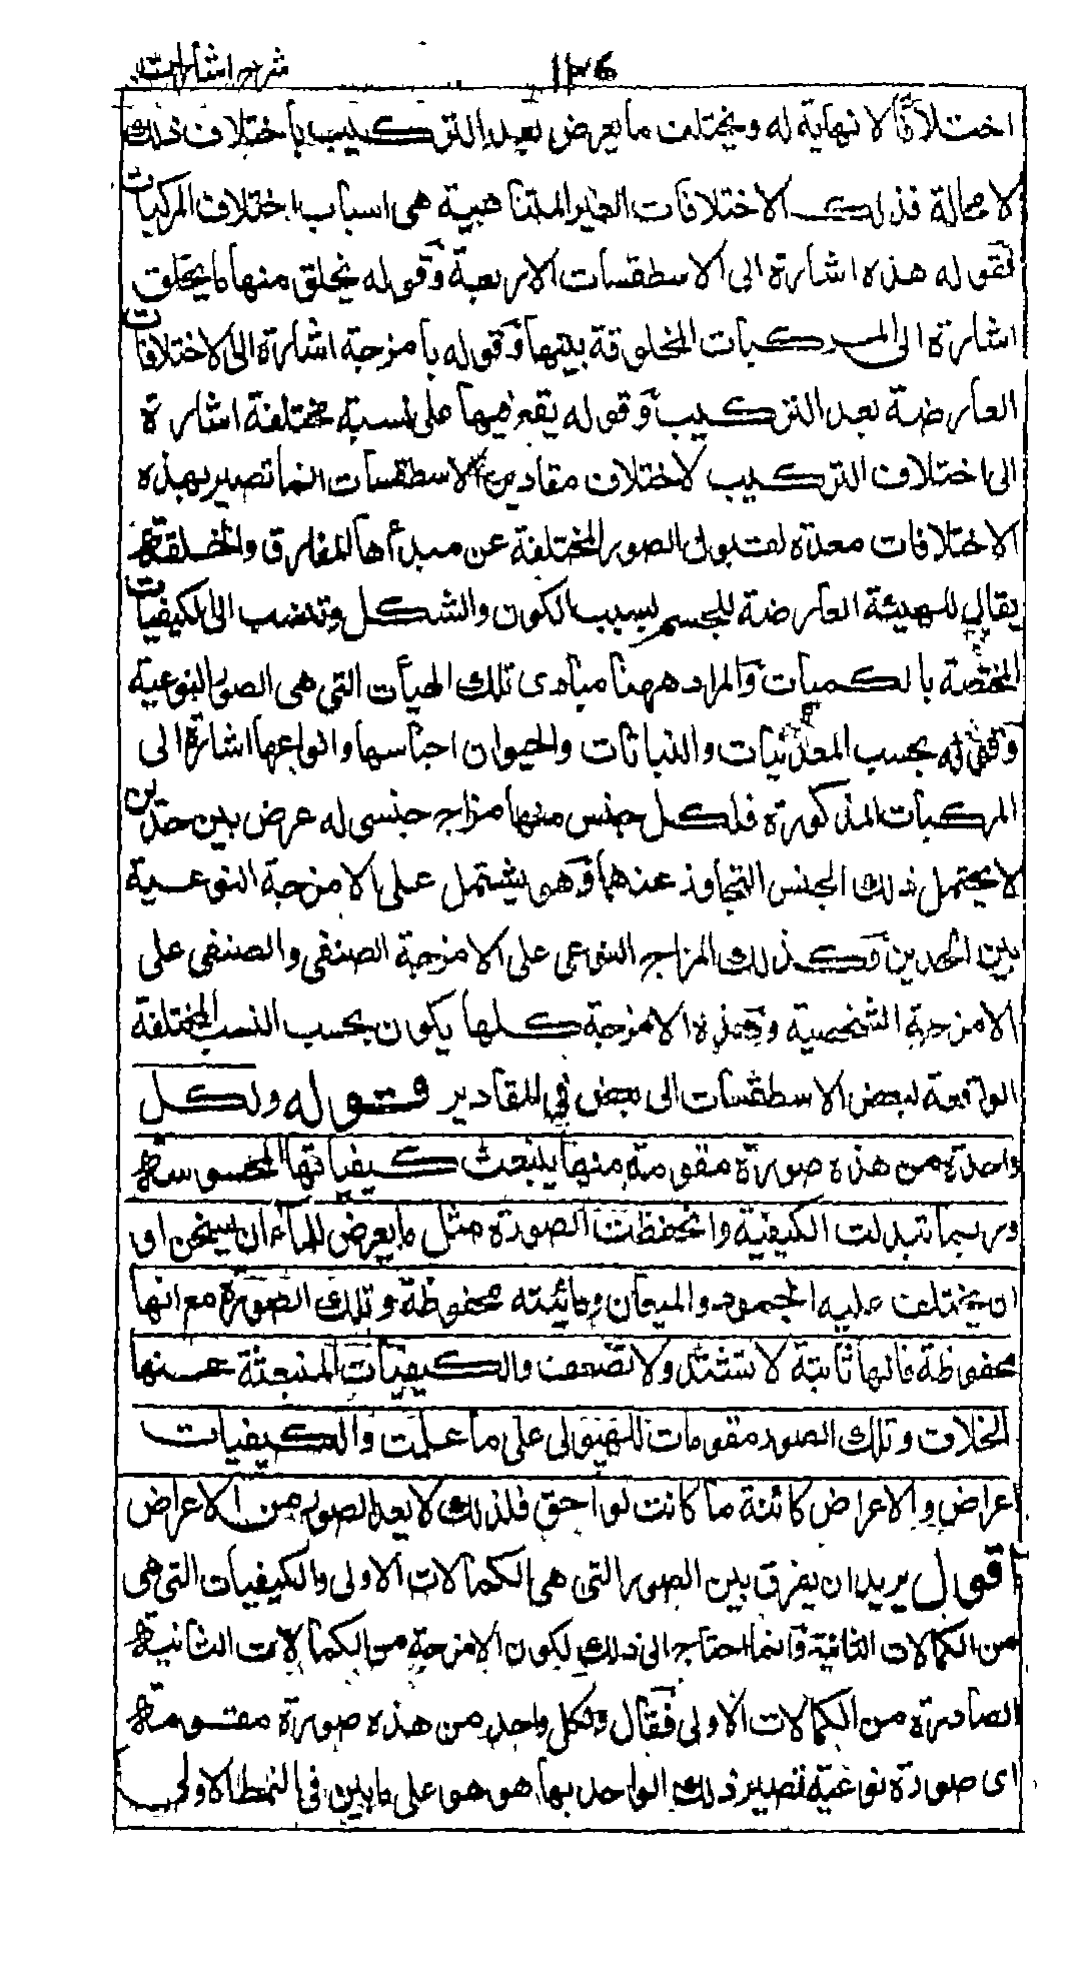 شرح اشارات
١٢٦
اختلافًا لا نهاية له ويختلف ما يعرض بعد التركيب باختلاف ذلك
لا محالة فذلك الاختلافات الغير المتناهية هى اسباب اختلاف المركبات
فقوله هذه اشارة الى الاسطقسات الاربعة وقوله يخلق منها ما يخلق
اشارة الى المركبات المخلوقة بينها وقوله بامزجة اشارة الى الاختلافات
العارضة بعد التركيب وقوله يقع فيها على نسبة مختلفة اشارة
الى اختلاف التركيب لاختلاف مقادير الاسطقسات انما تصير بهذه
الاختلافات معدة لقبول الصور المختلفة عن مبدأها المفارق والخلقة
يقال للهيئة العارضة للجسم بسبب الكون والشكل وتنسب الى الكيفيات
المختصة بالكميات والمراد ههنا مبادى تلك الهيأت التى هى الصور النوعية
وقوله بحسب المعدنيات والنباتات والحيوان اجناسها وانواعها اشارة الى
المركبات المذكورة فلكل جنس منها مزاج جنسى له عرض بين حدين
لا يحتمل ذلك الجنس التجاوز عنهما وهو يشتمل على الامزجة النوعية
بين الحدين وكذلك المزاج النوعى على الامزجة الصنفى والصنفى على
الامزجة الشخصية وهذه الامزجة كلها يكون بحسب النسب المختلفة
الواقعة لبعض الاسطقسات الى بعض في المقادير قوله ولكل
واحدة من هذه صورة مقومة منها ينبعث كيفياتها المحسوسة
وربما تبدلت الكيفية وانحفظت الصورة مثل ما يعرض للماء ان يسخن او
ان يختلف عليه الجمود والميعان ومائيته محفوظة وتلك الصورة مع انها
محفوظة فانها ثابتة لا تشتد ولا تضعف والكيفيات المنبعثة عنها
بالخلاف وتلك الصور مقومات للهيولى على ما علمت والكيفيات
اعراض والاعراض كائنة ما كانت لواحق فلذلك لا يعد الصور من الاعراض
اقول يريد ان يفرق بين الصور التى هى الكمالات الاولى والكيفيات التى هى
من الكمالات الثانية وانما احتاج الى ذلك لكون الامزجة من الكمالات الثانية
الصادرة من الكمالات الاولى فقال ولكل واحد من هذه صورة مقومة
اى صورة نوعية تصير ذلك الواحد بها هو هو على ما بين فى النمط الاول